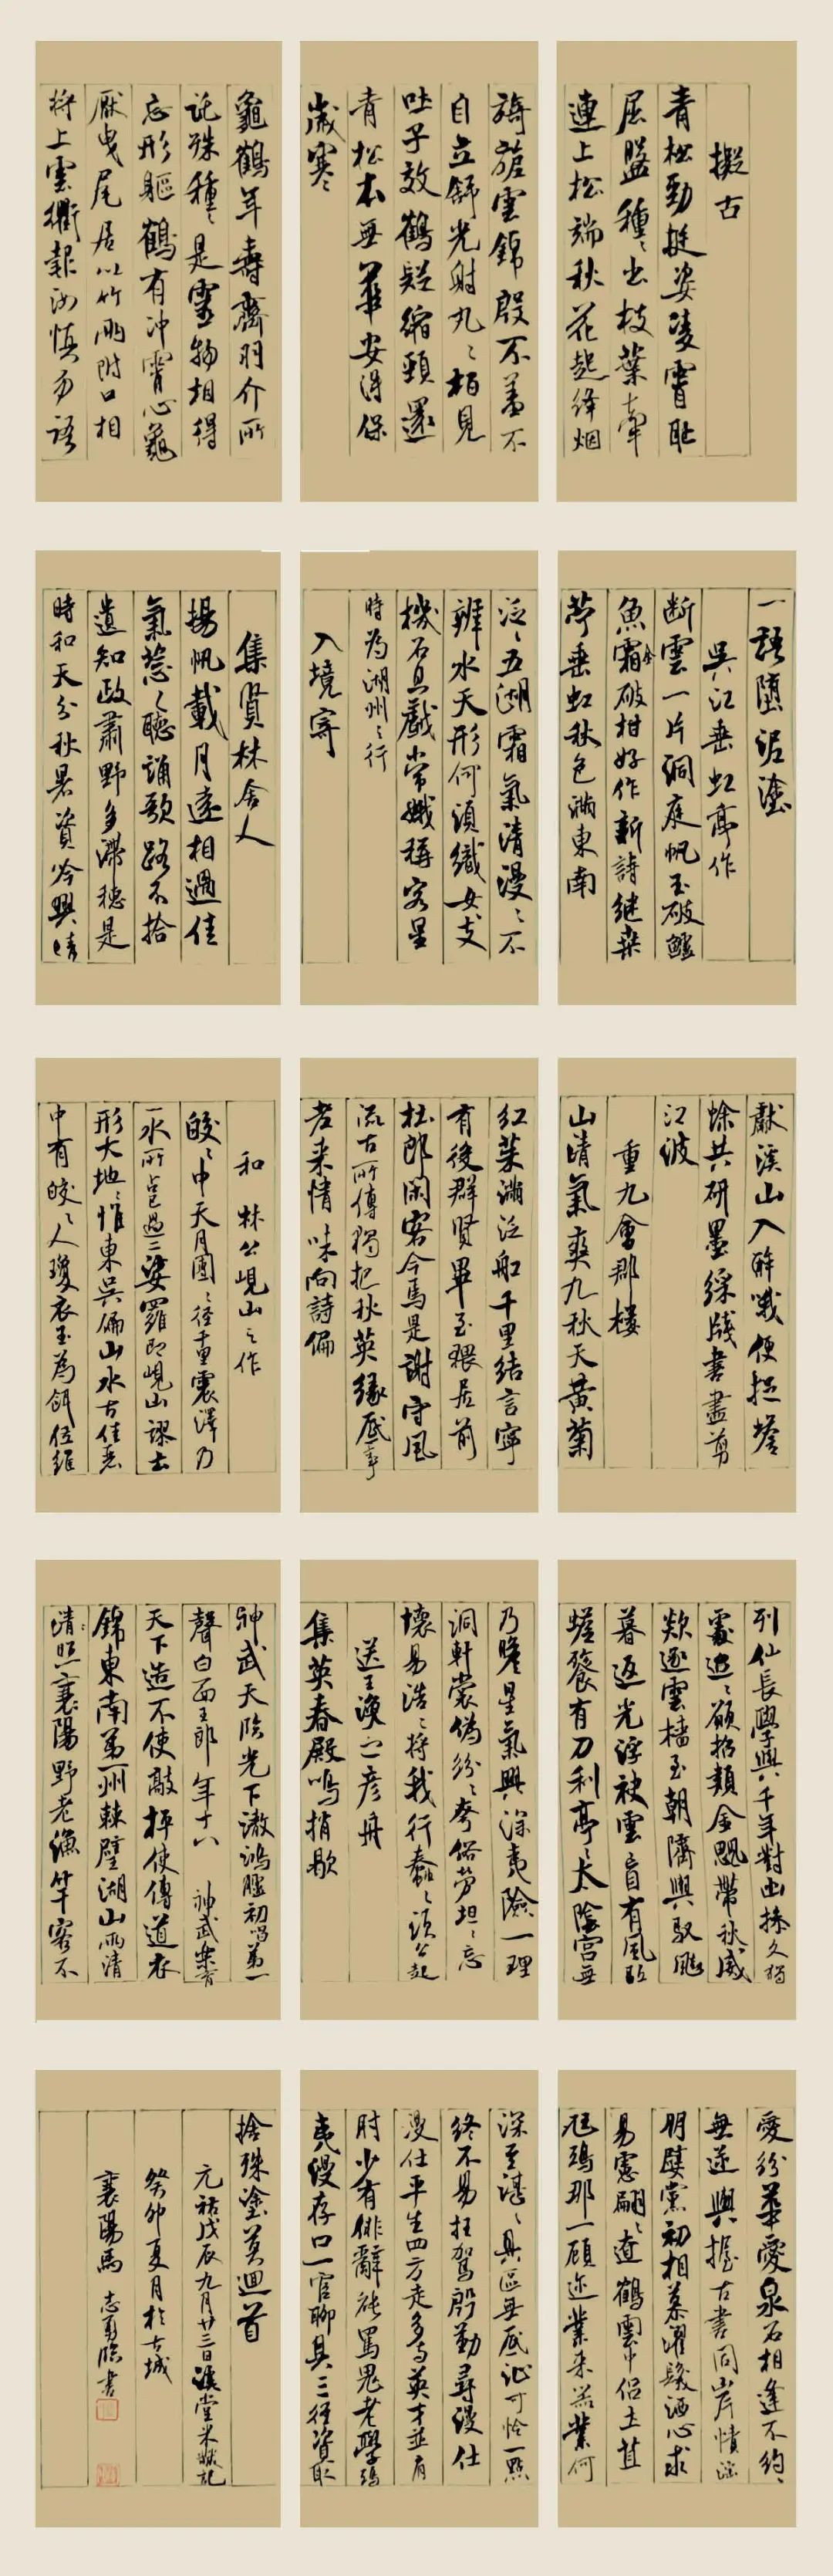 擬古
青松勁挺姿凌霄恥
屈盤種々出枝葉牽
連上松端秋花起絳烟
旖旎雲錦殷不羞不
自立舒光射丸々柏見
吐子效鶴疑縮頸還
青松本無華安得保
歲寒
龜鶴年壽齊羽介所
託殊種々是靈物相得
忘形軀鶴有冲霄心龜
厭曳尾居以竹兩附口相
將上雲衢報汝慎勿語
一語墮泥塗
吳江垂虹亭作
断雲一片洞庭帆玉破鱸
魚霜金破柑好作新詩継桑
苧垂虹秋色滿東南
泛々五湖霜氣清漫々不
辨水天形何須織女支
機石且戲常娥稱客星
時為湖州之行
入境寄
集賢林舍人
揚帆載月遠相過佳
氣蔥々聽誦歌路不拾
遺知政肅野多滯穗是
時和天分秋暑資吟興晴
獻溪山入醉哦便捉蟾
蜍共研墨綵牋書盡剪
江波
重九會郡樓
山清氣爽九秋天黃菊
紅茱滿泛船千里結言寧
有後群賢畢至猥居前
杜郎閑客今焉是謝守風
流古所傳獨把秋英緣底事
老来情味向詩偏
和林公峴山之作
皎々中天月團々徑千里震澤乃
一水所占已過二娑羅即峴山謬云
形大地惟東吳偏山水古佳麗
中有皎々人瓊衣玉為餌位維
列仙長學與千年對幽操久獨
處迢々願招類金飈帶秋威
欻逐雲檣至朝隮與馭飈
暮返光浮袂雲盲有風駟
蟾餮有刀利亭々太陰宮無
乃瞻星氣興深夷險一理
洞軒裳偽紛々夸俗勞坦々忘
懷易浩々將我行蠢々須公起
送王渙之彦舟
集英春殿鳴捎歇
神武天臨光下澈鴻臚初唱第一
聲白面王郎年十八神武樂育
天下造不使敲枰使傳道衣
錦東南第一州棘璧湖山兩清
清照襄陽野老漁竿客不
愛紛華愛泉石相逢不約約
無逆與握古書同岸幘淫
朋嬖黨初相慕濯髮洒心求
易慮翩々遼鶴雲中侶土苴
尪鴟那一顧迩業来器業何
深至湛々具區無底沚可怜一點
終不易枉駕殷勤尋漫仕
漫仕平生四方走多与英才並肩
肘少有俳辭能罵鬼老學鴟
夷漫存口一官聊具三徑資取
捨殊塗莫迴首
元祐戊辰九月廿三日溪堂米黻記
癸卯夏月於古城
襄陽馬志勇臨書